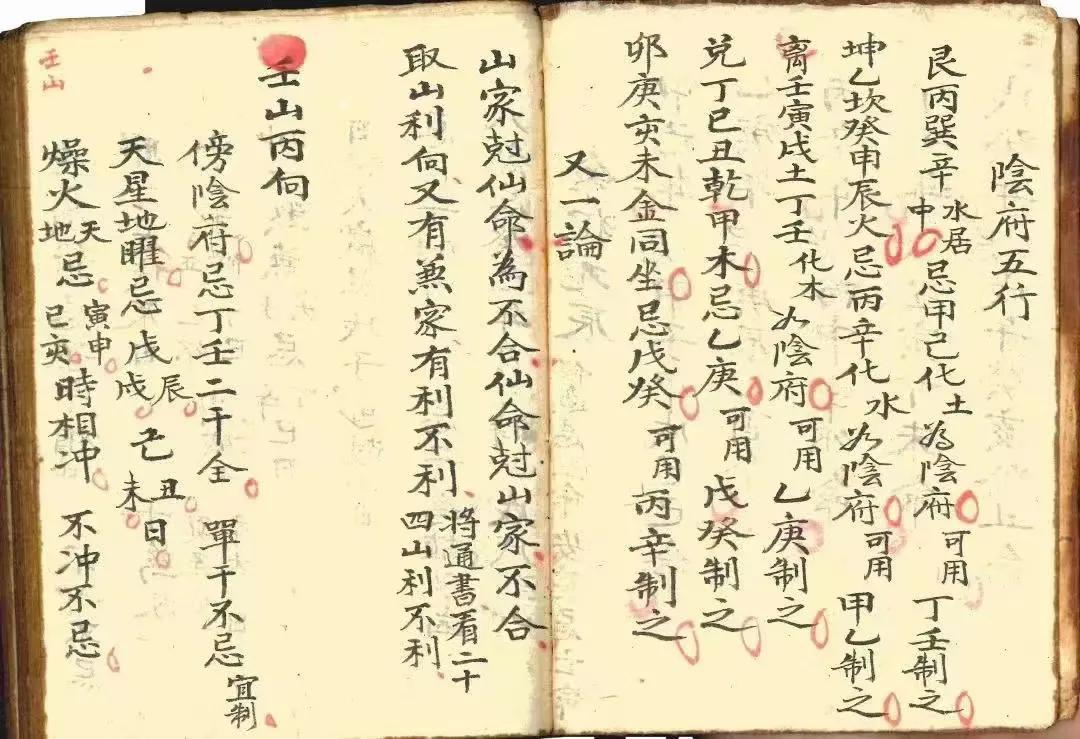 陰府五行
艮丙巽辛水居申忌甲己化土為陰府可用丁壬制之
坤乙坎癸申辰火忌丙辛化水為陰府可用甲乙制之
离壬寅戌土丁壬化木为陰府可用乙庚制之
兌丁巳丑乾甲木忌乙庚可用戊癸制之
卯庚亥未金同坐忌戊癸可用丙辛制之
又一論
山家尅仙命為不合仙命尅山家不合
取山利向又有兼家有利不利將通書看二十四山利不利
壬山丙向
傍陰府忌丁壬二干全單干不忌宜制
天星地曜忌戊辰戊戌己丑未日
燥火天地忌寅申巳亥時相冲不冲不忌
壬山